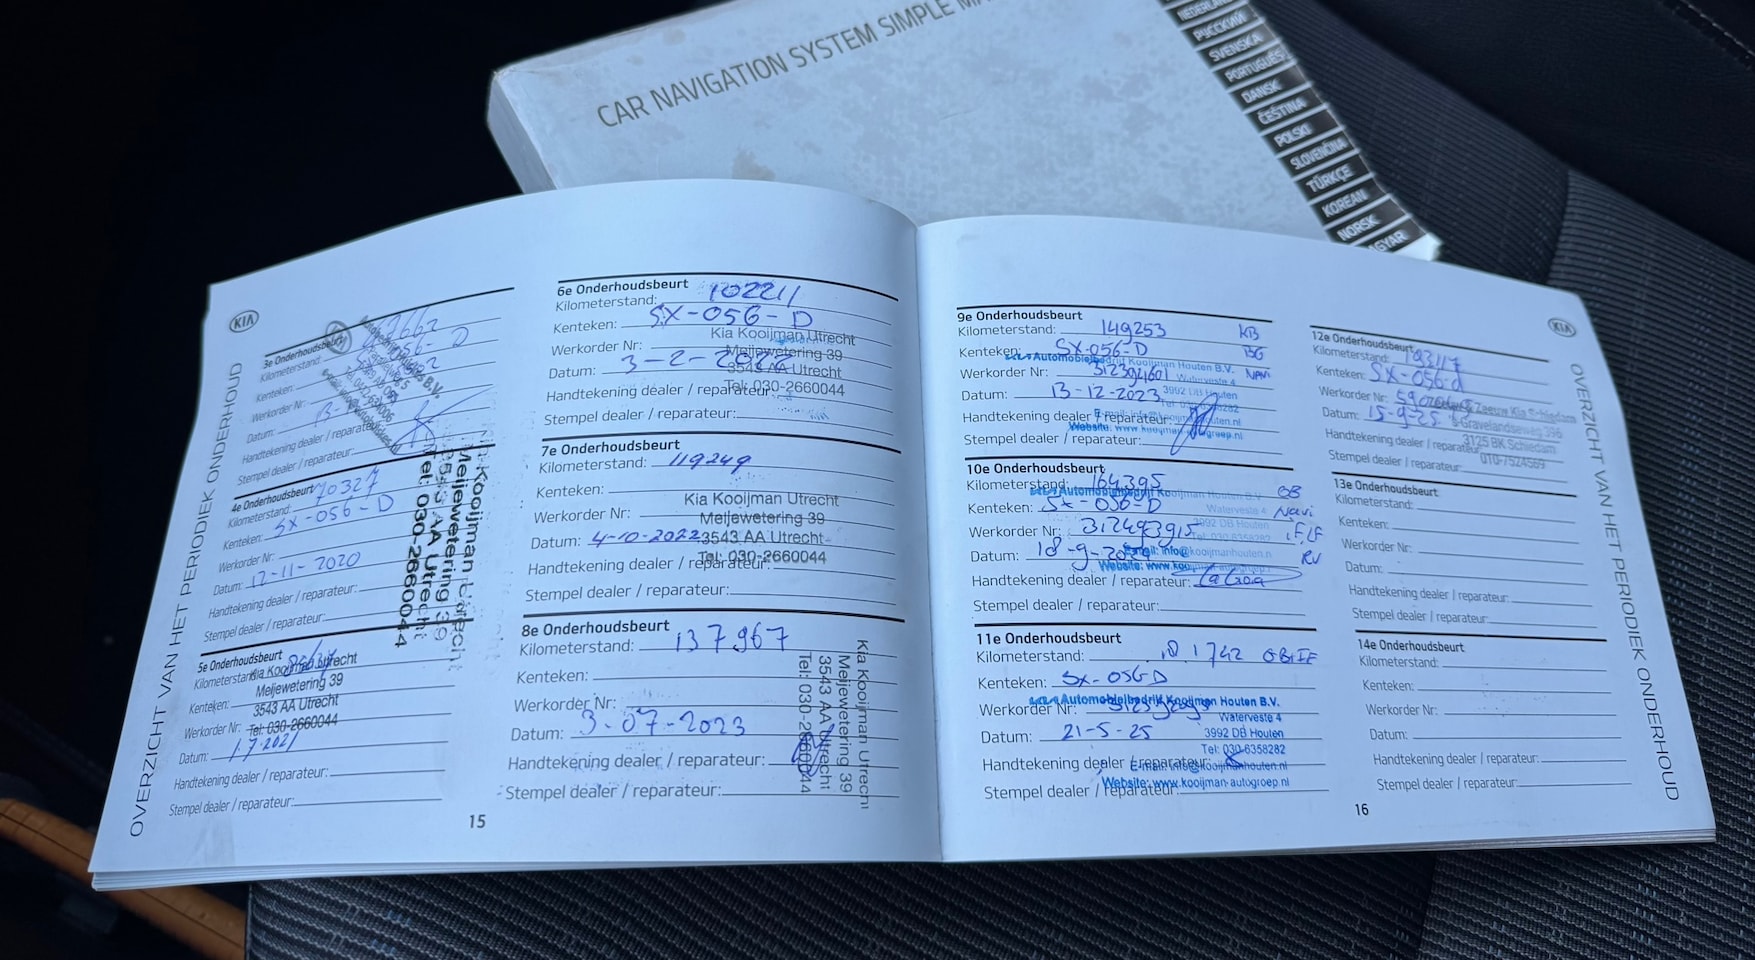 CAR NAVIGATION SYSTEM SIMPLE
NEDERLANDS
РУССКИЙ
SVENSKA
PORTUGUÊS
DANSK
ČEŠTINA
POLSKI
SLOVENČINA
TÜRKÇE
KOREAN
NORSK
MAGYAR
KIA
OVERZICHT VAN HET PERIODIEK ONDERHOUD
3e Onderhoudsbeurt
Kilometerstand:
Kenteken:
Werkorder Nr:
Datum:
Handtekening dealer / reparateur:
Stempel dealer / reparateur:
4e Onderhoudsbeurt
Kilometerstand: 70327
Kenteken: SX-056-D
Werkorder Nr:
Datum: 12-11-2020
Handtekening dealer / reparateur:
Stempel dealer / reparateur:
Kia Kooijman Utrecht
Meijewetering 39
3543 AA Utrecht
Tel: 030-2660044
5e Onderhoudsbeurt
Kilometerstand:
Kenteken:
Werkorder Nr:
Datum: 1-7-2021
Handtekening dealer / reparateur:
Stempel dealer / reparateur:
Kia Kooijman Utrecht
Meijewetering 39
3543 AA Utrecht
Tel: 030-2660044
6e Onderhoudsbeurt
Kilometerstand: 102211
Kenteken: SX-056-D
Werkorder Nr:
Datum: 3-2-2022
Handtekening dealer / reparateur:
Stempel dealer / reparateur:
Kia Kooijman Utrecht
Meijewetering 39
3543 AA Utrecht
Tel: 030-2660044
7e Onderhoudsbeurt
Kilometerstand: 119249
Kenteken:
Werkorder Nr:
Datum: 4-10-2022
Handtekening dealer / reparateur:
Stempel dealer / reparateur:
Kia Kooijman Utrecht
Meijewetering 39
3543 AA Utrecht
Tel: 030-2660044
8e Onderhoudsbeurt
Kilometerstand: 137967
Kenteken:
Werkorder Nr:
Datum: 3-07-2023
Handtekening dealer / reparateur:
Stempel dealer / reparateur:
Kia Kooijman Utrecht
Meijewetering 39
3543 AA Utrecht
Tel: 030-2660044
15
9e Onderhoudsbeurt
Kilometerstand: 149253
Kenteken: SX-056-D
Werkorder Nr: 312304601
Datum: 13-12-2023
Handtekening dealer / reparateur:
Stempel dealer / reparateur:
Automobielbedrijf Kooijman Houten B.V.
Waterveste 4
3992 DB Houten
Website: www.kooijman-autogroep.nl
10e Onderhoudsbeurt
Kilometerstand: 164395
Kenteken: SX-056-D
Werkorder Nr: 312493915
Datum: 18-9-2024
Handtekening dealer / reparateur:
Stempel dealer / reparateur:
Automobielbedrijf Kooijman Houten B.V.
Waterveste 4
3992 DB Houten
Tel: 030-6358282
E-mail: info@kooijmanhouten.nl
OB
Navi
11e Onderhoudsbeurt
Kilometerstand: 181742
Kenteken: SX-056-D
Werkorder Nr:
Datum: 21-5-25
Handtekening dealer / reparateur:
Stempel dealer / reparateur:
Automobielbedrijf Kooijman Houten B.V.
Waterveste 4
3992 DB Houten
Tel: 030-6358282
E-mail: info@kooijmanhouten.nl
Website: www.kooijman-autogroep.nl
KIA
OVERZICHT VAN HET PERIODIEK ONDERHOUD
12e Onderhoudsbeurt
Kilometerstand: 193117
Kenteken: SX-056-d
Werkorder Nr:
Datum: 15-9-25
Handtekening dealer / reparateur:
Stempel dealer / reparateur:
Zeeuw Kia Schiedam
's-Gravelandseweg 396
3125 BK Schiedam
010-7524569
13e Onderhoudsbeurt
Kilometerstand:
Kenteken:
Werkorder Nr:
Datum:
Handtekening dealer / reparateur:
Stempel dealer / reparateur:
14e Onderhoudsbeurt
Kilometerstand:
Kenteken:
Werkorder Nr:
Datum:
Handtekening dealer / reparateur:
Stempel dealer / reparateur:
16